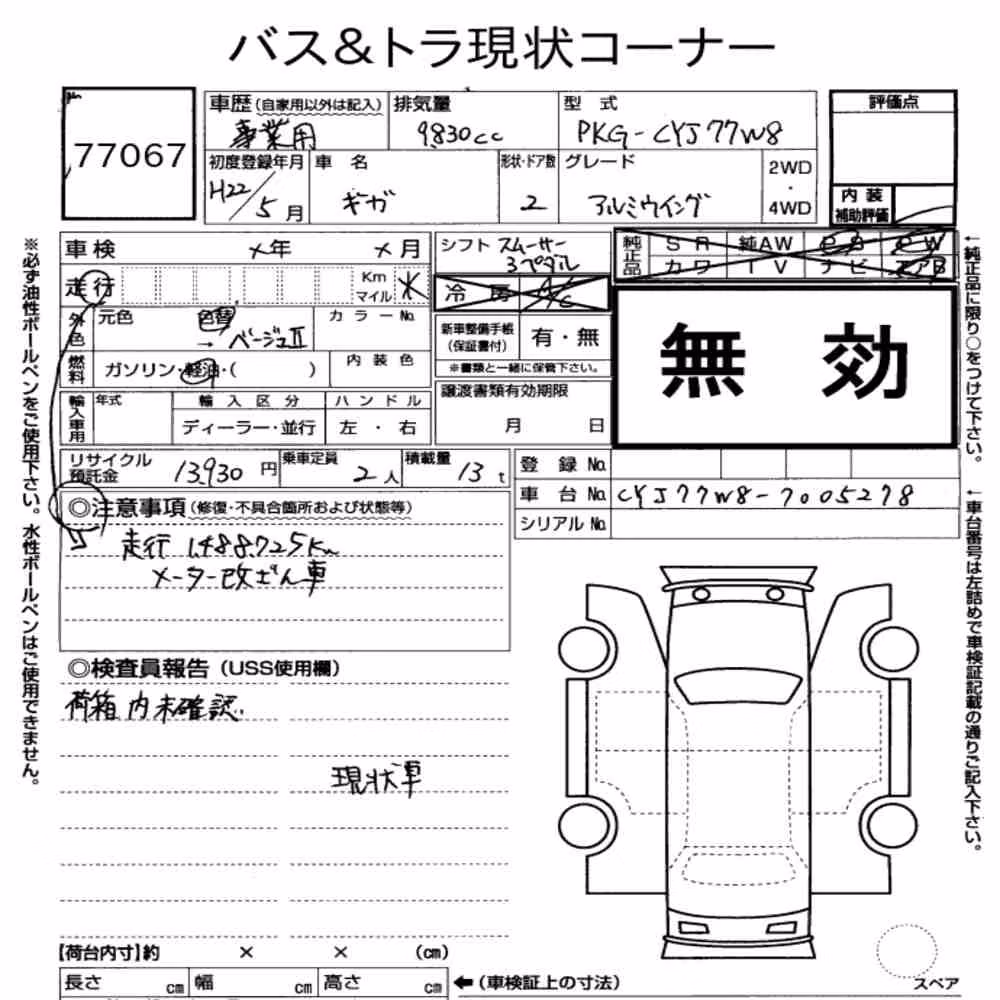 バス&トラ現状コーナー
77067
車歴(自家用以外は記入)
事業用
排気量
9,830cc
型 式
PKG-CYJ77W8
評価点
初度登録年月
H22/5月
車 名
ギガ
形状・ドア数
2
グレード
アルミウイング
2WD
・
4WD
内 装
補助評価
車 検 ×年 ×月
シフト スムーサー
3ペダル
純正品
S R 純AW P S P W
カ ワ T V ナ ビ エアB
走行 Km
マイル ※
冷 房 A/C
外色
元色
色替
→ベージュII
カ ラ ー No.
新車整備手帳
(保証書付)
有・無
※書類と一緒に保管下さい。
燃料
ガソリン・軽油・( )
内 装 色
無 効
輸入車用
年式
輸 入 区 分
ディーラー・並行
ハ ン ド ル
左 ・ 右
譲渡書類有効期限
月 日
リサイクル
預託金
13,930 円
乗車定員
2人
積載量
13 t
登 録 No.
車 台 No. CYJ77W8-7005278
シリアル No.
◎注意事項(修復・不具合箇所および状態等)
走行 1,488,725Km
メーター改ざん車
◎検査員報告(USS使用欄)
荷箱内未確認
現状車
【荷台内寸】約 × × (cm)
長さ cm 幅 cm 高さ cm
←(車検証上の寸法)
スペア
※必ず油性ボールペンをご使用下さい。水性ボールペンはご使用できません。
←純正品に限り○をつけて下さい。
←車台番号は左詰めで車検証記載の通りご記入下さい。